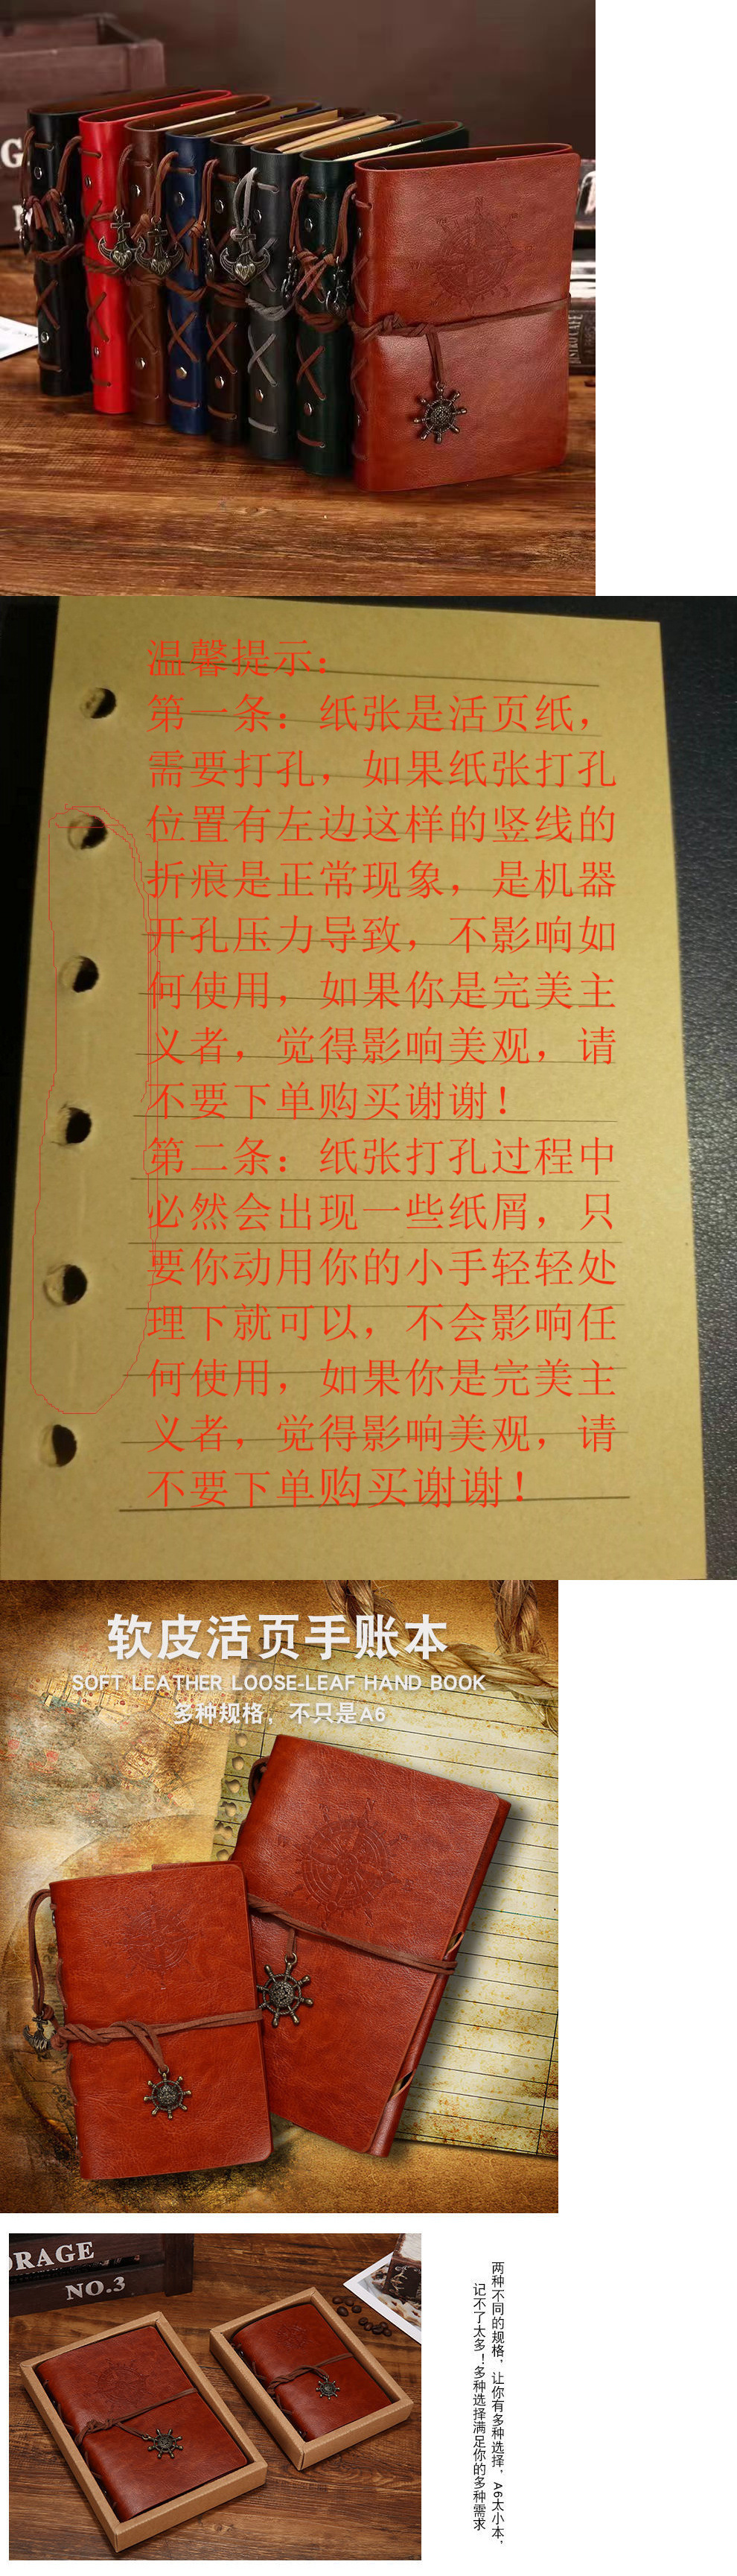 温馨提示:
第一条：纸张是活页纸，
需要打孔，如果纸张打孔
位置有左边这样的竖线的
折痕是正常现象，是机器
开孔压力导致，不影响如
何使用，如果你是完美主
义者，觉得影响美观，请
不要下单购买谢谢！
第二条：纸张打孔过程中
必然会出现一些纸屑，只
要你动用你的小手轻轻处
理下就可以，不会影响任
何使用，如果你是完美主
义者，觉得影响美观，请
不要下单购买谢谢！
软皮活页手账本
SOFT LEATHER LOOSE-LEAF HAND BOOK
多种规格，不只是A6
ORAGE
NO.3
两种不同的规格，让你有多种选择，A6太小本，
记不了太多！多种选择满足你的多种需求